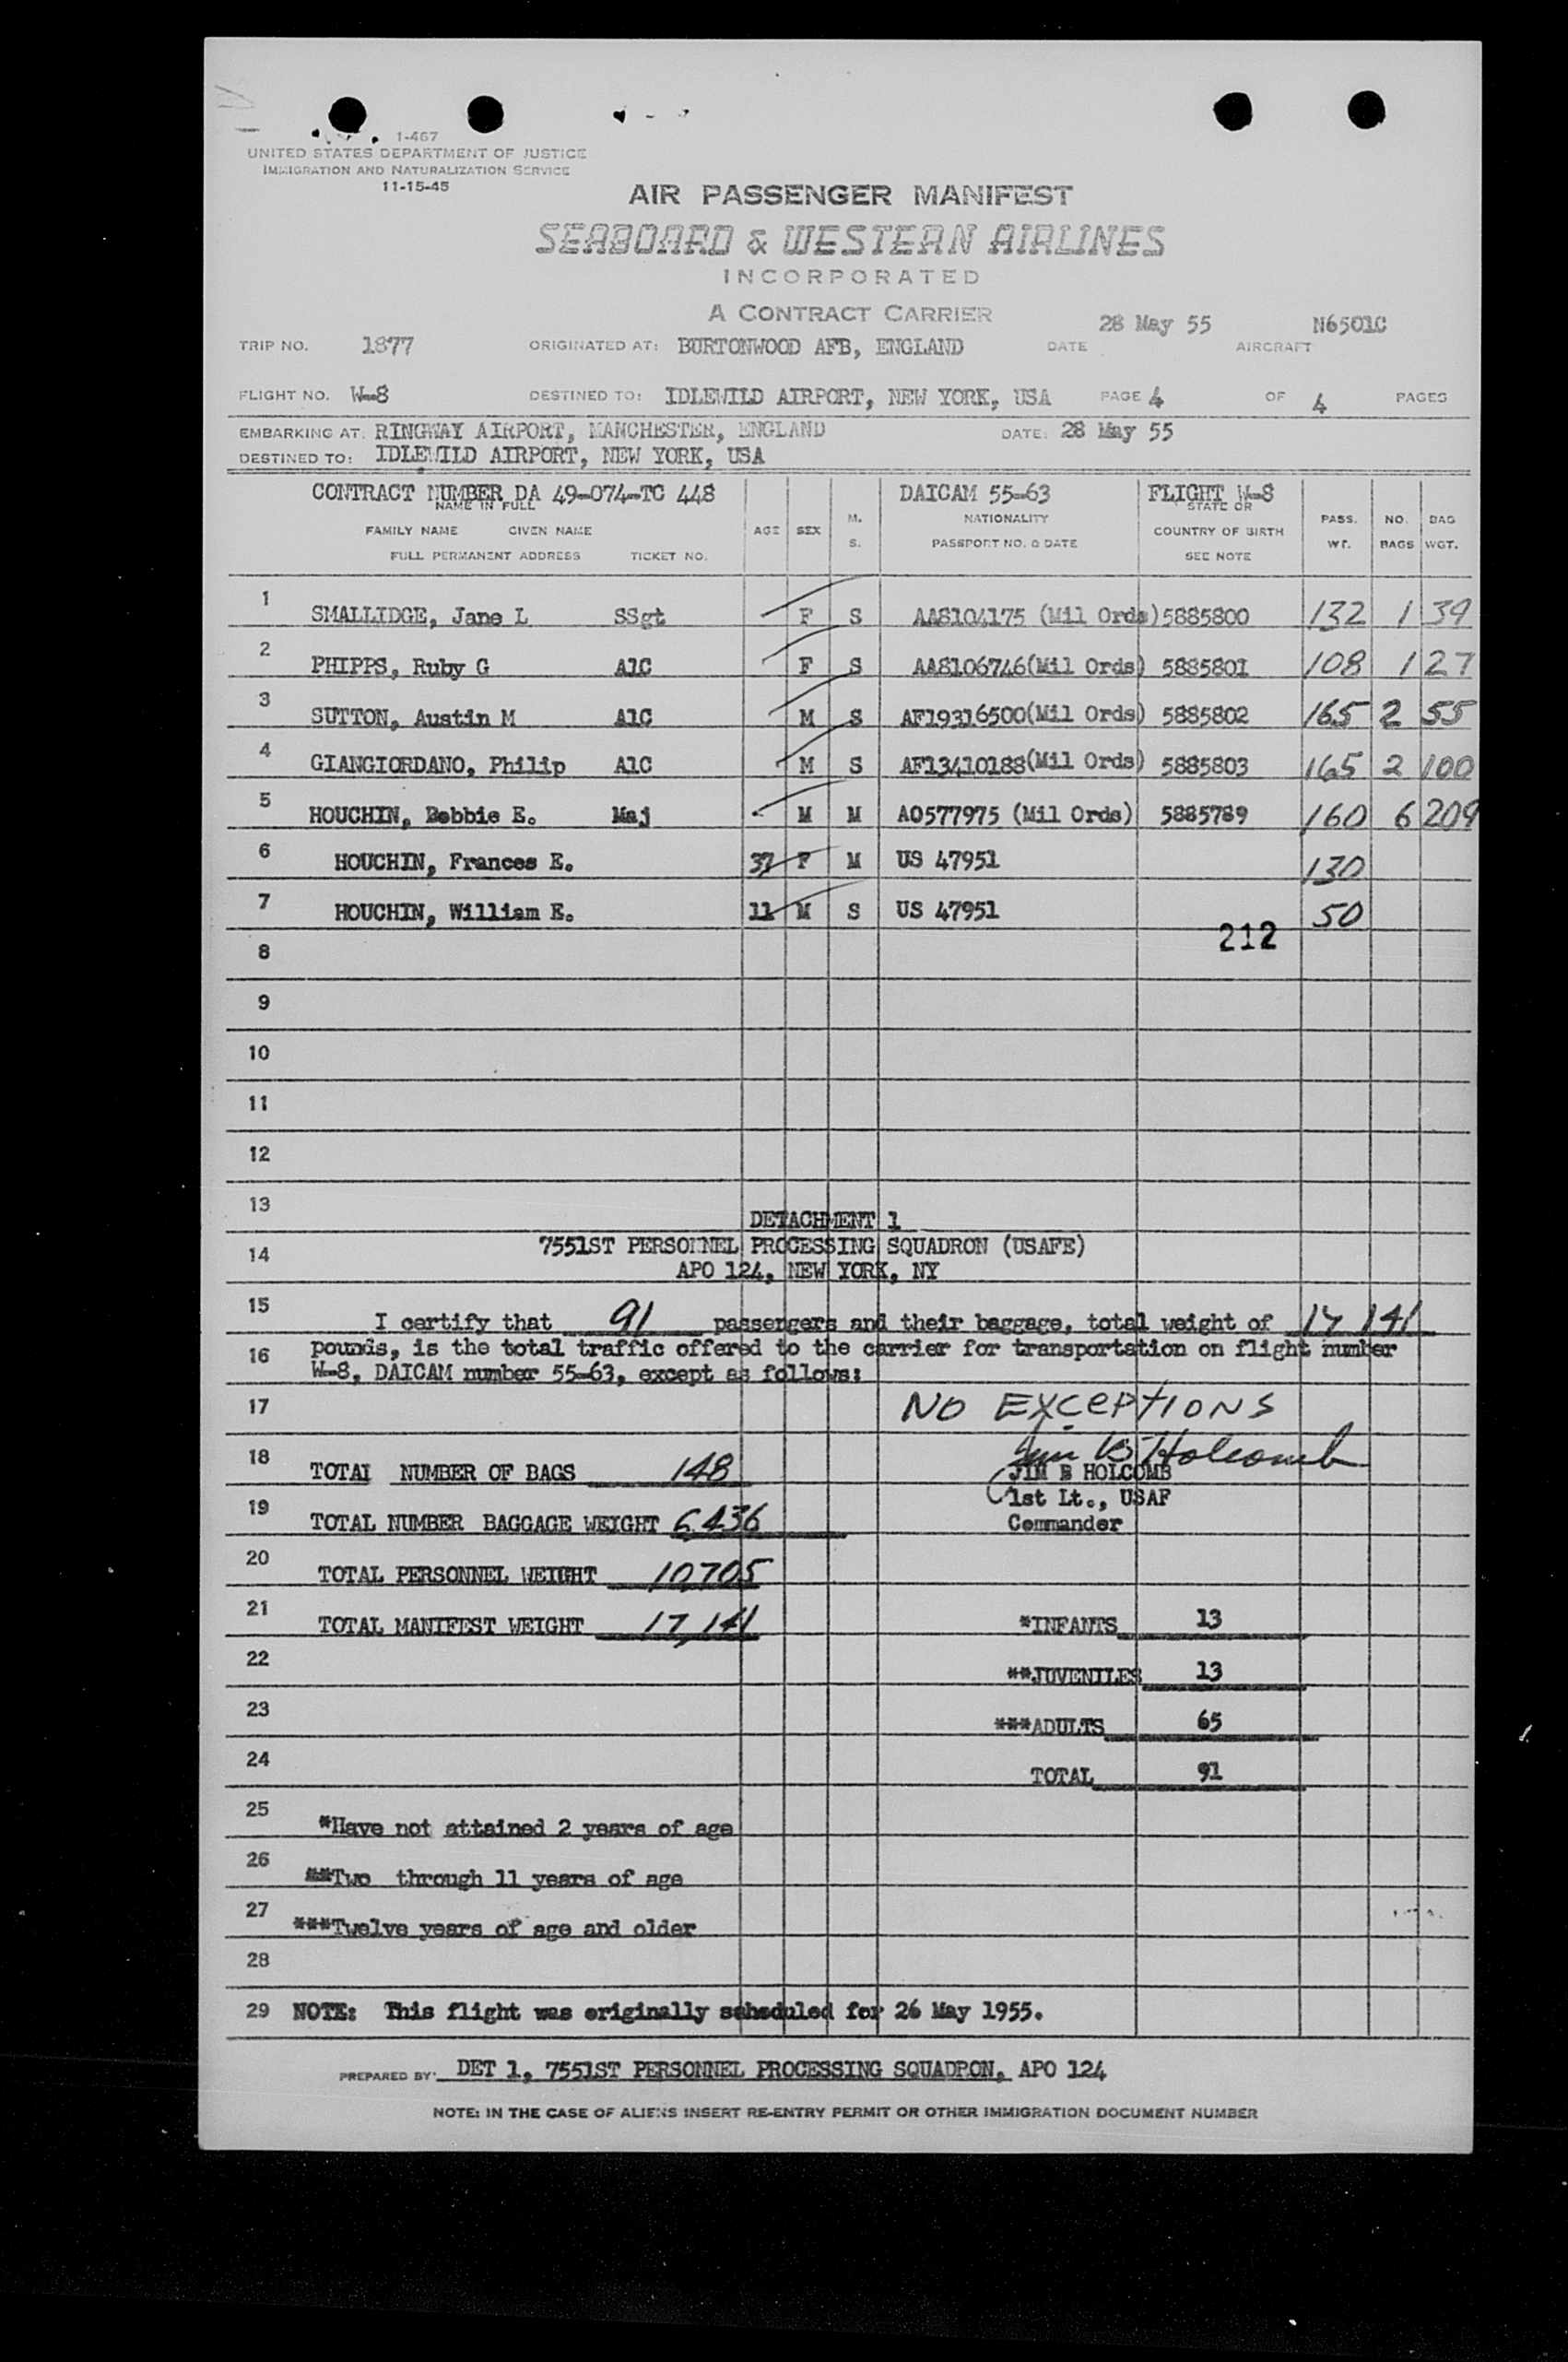 1-467
UNITED STATES DEPARTMENT OF JUSTICE
IMMIGRATION AND NATURALIZATION SERVICE
11-15-45
AIR PASSENGER MANIFEST
SEABOARD & WESTERN AIRLINES
INCORPORATED
A CONTRACT CARRIER
TRIP NO. 1877 ORIGINATED AT: BURTONWOOD AFB, ENGLAND DATE 28 May 55 AIRCRAFT N6501C
FLIGHT NO. W-8 DESTINED TO: IDLEWILD AIRPORT, NEW YORK, USA PAGE 4 OF 4 PAGES
EMBARKING AT: RINGWAY AIRPORT, MANCHESTER, ENGLAND DATE: 28 May 55
DESTINED TO: IDLEWILD AIRPORT, NEW YORK, USA
CONTRACT NUMBER DA 49-074-TC 448 DAICAM 55-63 FLIGHT W-8
NAME IN FULL STATE OR
FAMILY NAME GIVEN NAME AGE SEX M. S. NATIONALITY COUNTRY OF BIRTH PASS. WT. NO. BAGS BAG WGT.
FULL PERMANENT ADDRESS TICKET NO. PASSPORT NO. & DATE SEE NOTE
1 SMALLIDGE, Jane L SSgt F S AA8104175 (Mil Ords) 5885800 132 1 39
2 PHIPPS, Ruby G A1C F S AA8106746(Mil Ords) 5885801 108 1 27
3 SUTTON, Austin M A1C M S AF19316500(Mil Ords) 5885802 165 2 55
4 GIANGIORDANO, Philip A1C M S AF13410188(Mil Ords) 5885803 165 2 100
5 HOUCHIN, Bobbie E. Maj M M AO577975 (Mil Ords) 5885789 160 6 209
6 HOUCHIN, Frances E. 37 F M US 47951 130
7 HOUCHIN, William E. 11 M S US 47951 50
212
8
9
10
11
12
13 DETACHMENT 1
14 7551ST PERSONNEL PROCESSING SQUADRON (USAFE)
APO 124, NEW YORK, NY
15 I certify that 91 passengers and their baggage, total weight of 17 141
16 pounds, is the total traffic offered to the carrier for transportation on flight number
W-8, DAICAM number 55-63, except as follows:
17 NO EXCEPTIONS
Jim B Holcomb
18 TOTAL NUMBER OF BAGS 148 JIM B HOLCOMB
1st Lt., USAF
19 TOTAL NUMBER BAGGAGE WEIGHT 6436 Commander
20 TOTAL PERSONNEL WEIGHT 10705
21 TOTAL MANIFEST WEIGHT 17,141 *INFANTS 13
22 **JUVENILES 13
23 ***ADULTS 65
24 TOTAL 91
25 *Have not attained 2 years of age
26 **Two through 11 years of age
27 ***Twelve years of age and older
28
29 NOTE: This flight was originally scheduled for 26 May 1955.
PREPARED BY: DET 1, 7551ST PERSONNEL PROCESSING SQUADRON, APO 124
NOTE: IN THE CASE OF ALIENS INSERT RE-ENTRY PERMIT OR OTHER IMMIGRATION DOCUMENT NUMBER